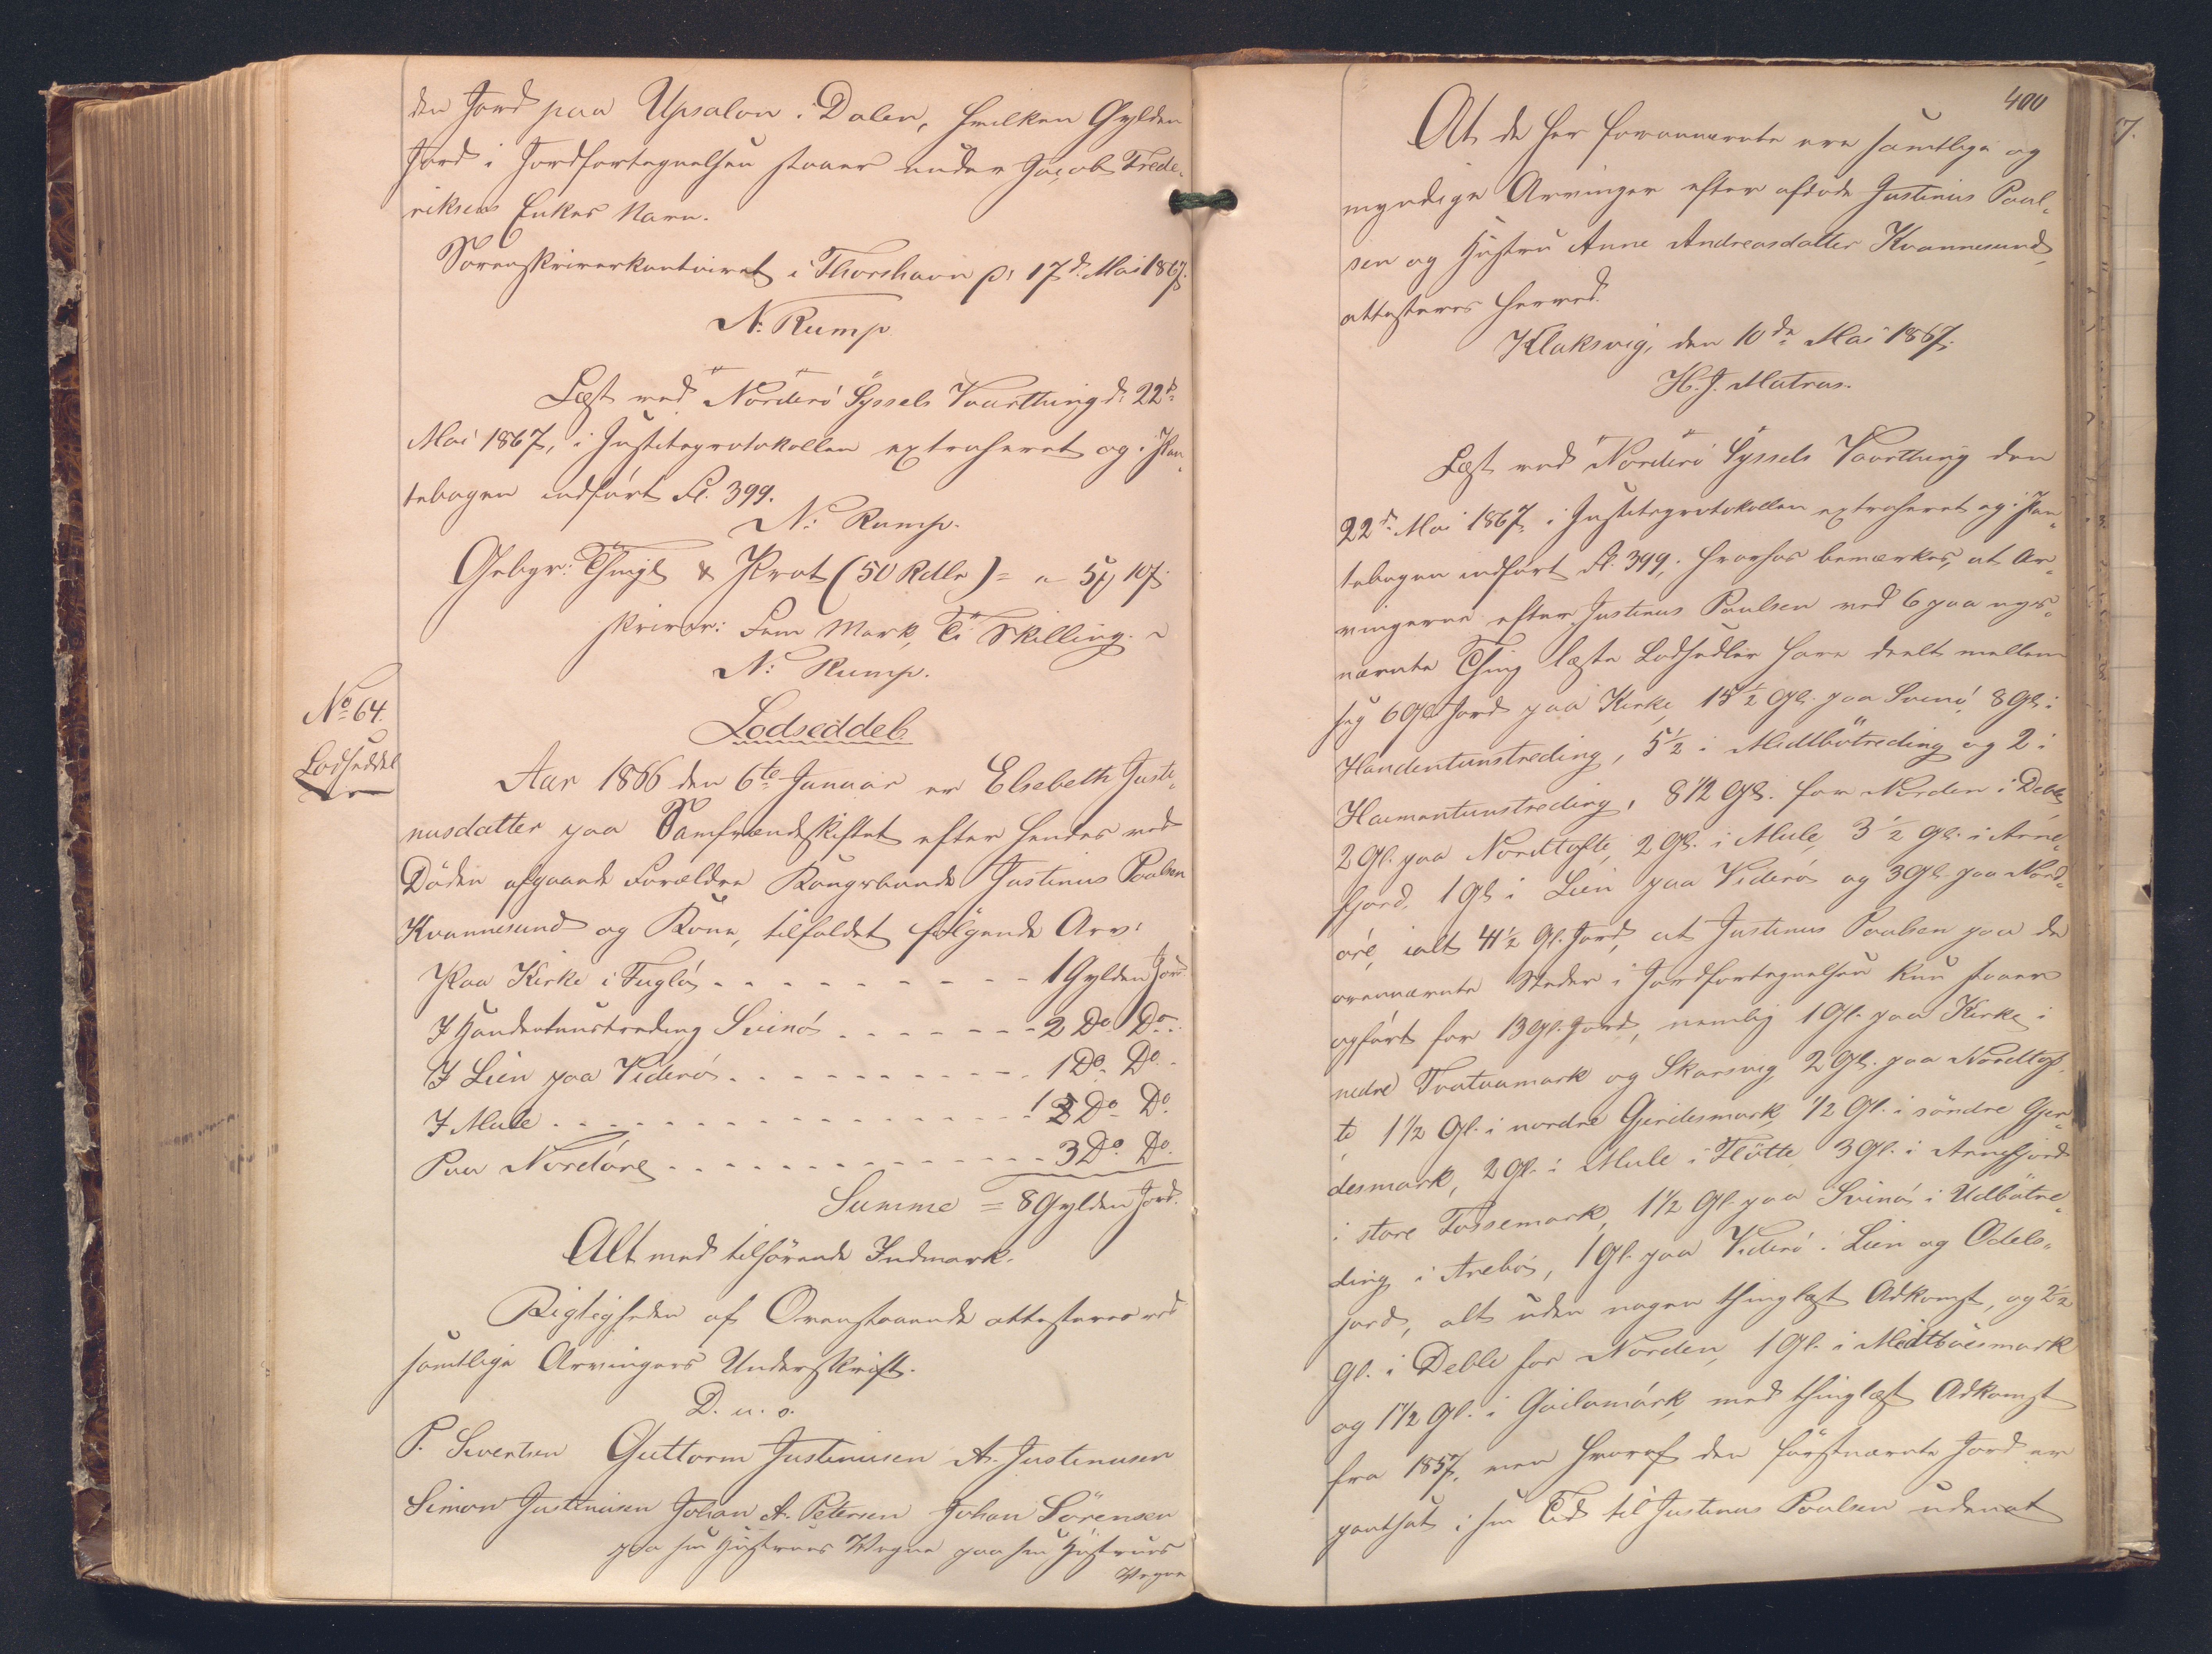 den Jord paa Upsalon i Dalen, hvilken Gylden
Jord i Jordfortegnelsen staaer under Jacob Frede-
riksens Enkes Navn.
Sorenskriverkontoiret i Thorshavn p: 17d. Mai 1867.
N: Rump.
Læst ved Norderö Syssels Vaarthing d: 22d.
Mai 1867, i Justitsprotokollen extraheret og i Pan-
tebogen indført Fl. 399.
N: Rump.
Gebyr: Thingl & Prot (50 Rdlr) = " 5 10
skriver: Fem Mark, Ti Skilling. ~
N: Rump.
No 64.
Lodseddel
Lodseddel.
Aar 1866 den 6te Januar er Elsebeth Justi-
nusdatter paa Samfrændeskiftet efter hendes ved
Döden afgaaende Forældre Kongsbonde Justinus Poulsen
Kvannesund og Kone, tilfaldet fölgende Arv:
Paa Kirke i Fuglö - - - - - - - - - 1 Gylden Jord
I Handentunstreding Svinö - - - - - - - 2 Do Do
I Lien paa Viderö - - - - - - - - - - 1 Do Do
I Mule - - - - - - - - - - - - - - - 1 Do Do
Paa Nordöre - - - - - - - - - - - - - 3 Do Do
Summe = 8 Gylden Jord.
Alt med tilhörende Indmark.
Rigtigheden af Ovenstaaende attesteres ved
samtlige Arvingers Underskrift.
D. u. s.
P. Sivertsen Guttorm Justinusen A. Justinusen
Simon Justinusen Johan A. Petersen Johan Sörensen
paa sin Hustrues Vegne paa sin Hustrues
Vegne
400
At de her forannævnte ere samtlige og
myndige Arvinger efter afdøde Justinus Poul-
sen og Hustru Anne Andreasdatter Kvannesund,
attesteres herved.
Klaksvig, den 10de Mai 1867.
H. J. Matras.
Læst ved Norderö Syssels Vaarthing den
22d. Mai 1867, i Justitsprotokollen extraheret og i Pan-
tebogen indført Fl. 399, hvorhos bemærkes, at Ar-
vingerne efter Justinus Poulsen ved 6 paa nys-
nævnte Thing læste Lodsedler have deelt mellem
sig 6 Gl. Jord paa Kirke, 15 1/2 Gl. paa Svinö, 8 Gl. i
Handentunstreding, 5 1/2 i Midtbötreding og 2 i
Heimantunstreding, 8 1/2 Gl. for Norden i Deble,
2 Gl. paa Nordtofte, 2 Gl. i Mule, 3 1/2 Gl. i Arne-
fjord, 1 Gl. i Lien paa Viderö og 3 Gl. paa Nord-
öre, ialt 41 1/2 Gl. Jord, at Justinus Poulsen paa de
ovennævnte Steder i Jordfortegnelsen kun staaer
opført for 13 Gl. Jord, nemlig 1 Gl. paa Kirke i
nedre Tvatvamark og Skarsvig, 2 Gl. paa Nordtof-
te, 1 1/2 Gl. i nordre Gjerdesmark, 1/2 Gl. i söndre Gjer-
desmark, 2 Gl. i Mule i Flötte, 3 Gl. i Arnefjord
i store Fossemark, 1 1/2 Gl. paa Svinö i Udbötre-
ding i Anebö, 1 Gl. paa Viderö i Lien og Odels-
jord, alt uden nogen thinglæst Adkomst, og 2 1/2
Gl. i Deble for Norden, 1 Gl. i Midtböesmark
og 1 1/2 Gl. i Gailamark, med thinglæst Adkomst
fra 1857, men hvoraf den förstnævnte Jord er
pantsat i sin Tid til Justinus Poulsen udenat